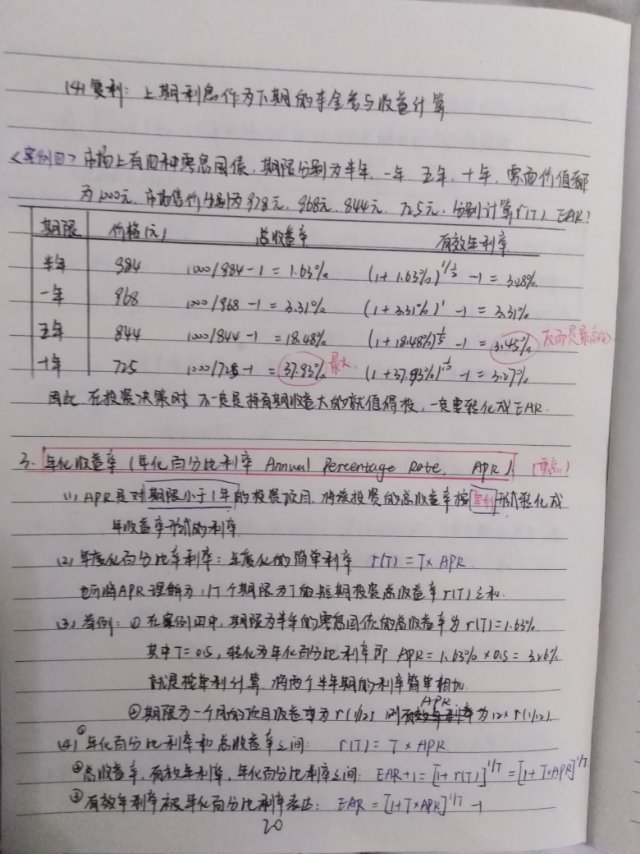 (4) 复利：上期利息作为下期的本金参与收益计算
<案例四> 市场上有四种零息国债，期限分别为半年、一年、五年、十年，票面价值都
为1000元，市场售价分别为978元、968元、844元、725元，分别计算r(T) EAR?
期限 价格(元) 总收益率 有效年利率
半年 984 1000/984-1=1.63% (1+1.63%)^{1/0.5}-1=3.28%
一年 968 1000/968-1=3.31% (1+3.31%)^1-1=3.31%
五年 844 1000/844-1=18.48% (1+18.48%)^{1/5}-1=3.45% 反而是最高的
十年 725 1000/725-1=37.93% 最大 (1+37.93%)^{1/10}-1=3.27%
因此 在投资决策时 不一定是持有期收益大的就值得投，一定要转化成EAR.
3. 年化收益率 (年化百分比利率 Annual Percentage Rate, APR) [重点]
(1) APR是对期限小于1年的投资项目，将该投资的总收益率按单利形式转化成
年收益率形式的利率
(2) 年度化百分比率利率：年度化的简单利率 r(T)=T×APR
也可将APR理解为1/T个期限为T的短期投资总收益率r(T)之和.
(3) 举例：① 在案例四中，期限为半年的零息国债的总收益率为r(T)=1.63%
其中T=0.5，转化为年化百分比利率即 APR=1.63%×0.5=3.26%
就是按单利计算，将两个半年期的利率简单相加.
②期限为一个月的项目收益率为r(1/12) 则APR为12×r(1/12)
(4) ①年化百分比利率和总收益率之间： r(T)=T×APR
②总收益率，有效年利率，年化百分比利率之间： EAR+1=[1+r(T)]^{1/T}=[1+T×APR]^{1/T}
③有效年利率被年化百分比利率表达： EAR=[1+T×APR]^{1/T}-1
20